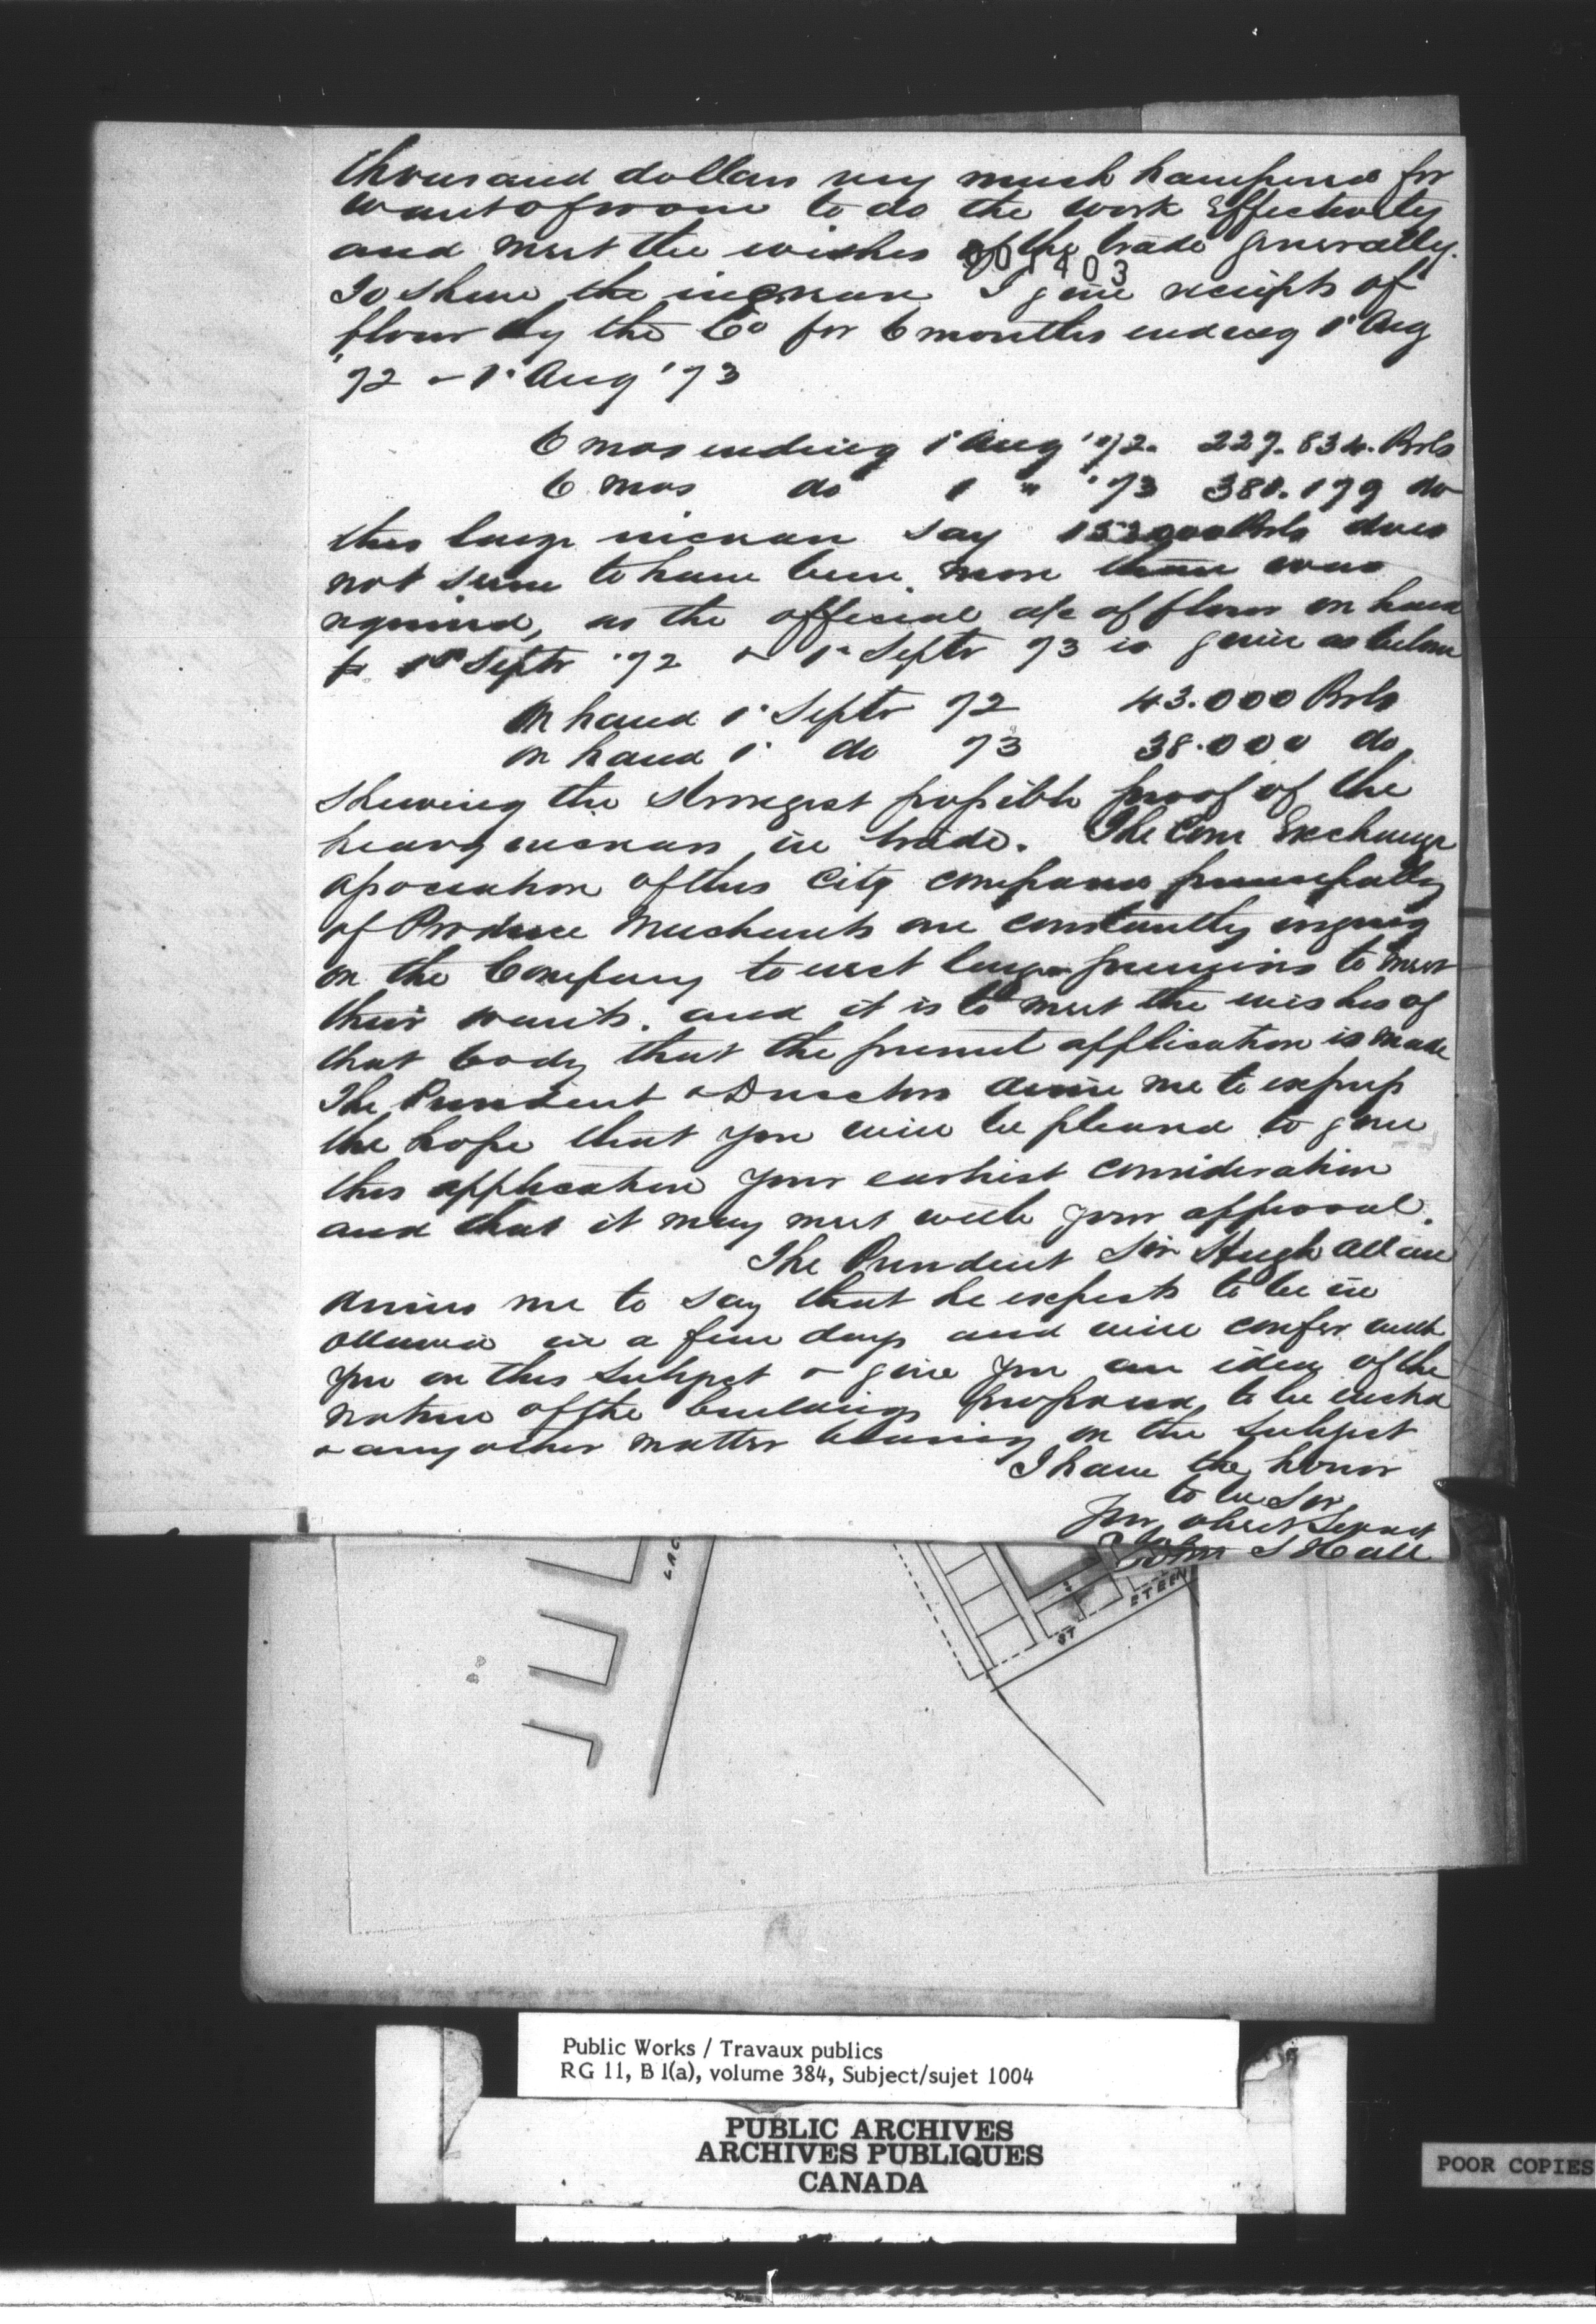 thousand dollars very much hampered for
want of room to do the work Effectively
and meet the wishes of the trade generally.
001403
To shew the increase I give receipts of
flour by the Co for 6 months ending 1st Aug
'72 & 1st Aug '73
6 mos ending 1st Aug '72. 227.834. Brls
6 mos do 1 " '73 380.179 do
this large increase say 152000 Brls does
not seem to have been more than was
required, as the official a/c of flour on hand
1st Septr '72 & 1st Septr 73 is given as below
On hand 1st Septr 72 43.000 Brls
on hand 1st do 73 38.000 do
shewing the strongest possible proof of the
heavy increase in trade. The Corn Exchange
association of this City composed principally
of Produce Merchants are constantly urging
on the Company to erect larger premises to meet
their wants, and it is to meet the wishes of
that body that the present application is made
The President & Directors desire me to express
the hope that you will be pleased to give
this application your earliest consideration
and that it may meet with your approval.
The President Sir Hugh Allan
desires me to say that he expects to be in
Ottawa in a few days and will confer with
you on this subject & give you an idea of the
nature of the buildings proposed to be erected
& any other matter bearing on the subject
I have the honor
to be Sir,
Your obedt Servant
John S Hall
LAC
ST ETIENN
Public Works / Travaux publics
RG 11, B 1(a), volume 384, Subject/sujet 1004
PUBLIC ARCHIVES
ARCHIVES PUBLIQUES
CANADA
POOR COPIES